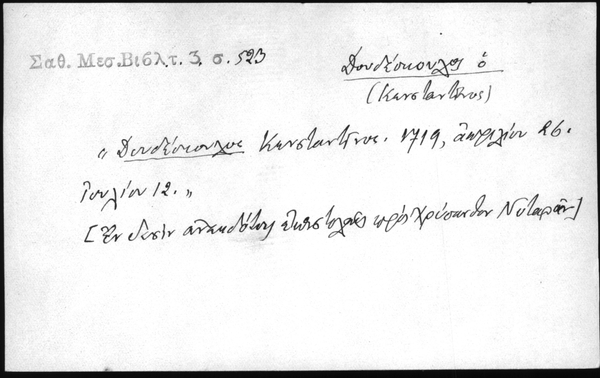 Σαθ. Μεσ. Βιβλ τ. 3, σ. 523
Δουδέσκουλος ὁ
(Κωνσταντῖνος)
„ Δουδέσκουλος Κωνσταντῖνος. 1719, ἀπριλίου 26.
Ἰουλίου 12. „
[Ἐν δυσὶν ἀνεκδότοις ἐπιστολαῖς πρὸς Χρύσανθον Νοταρᾶν]